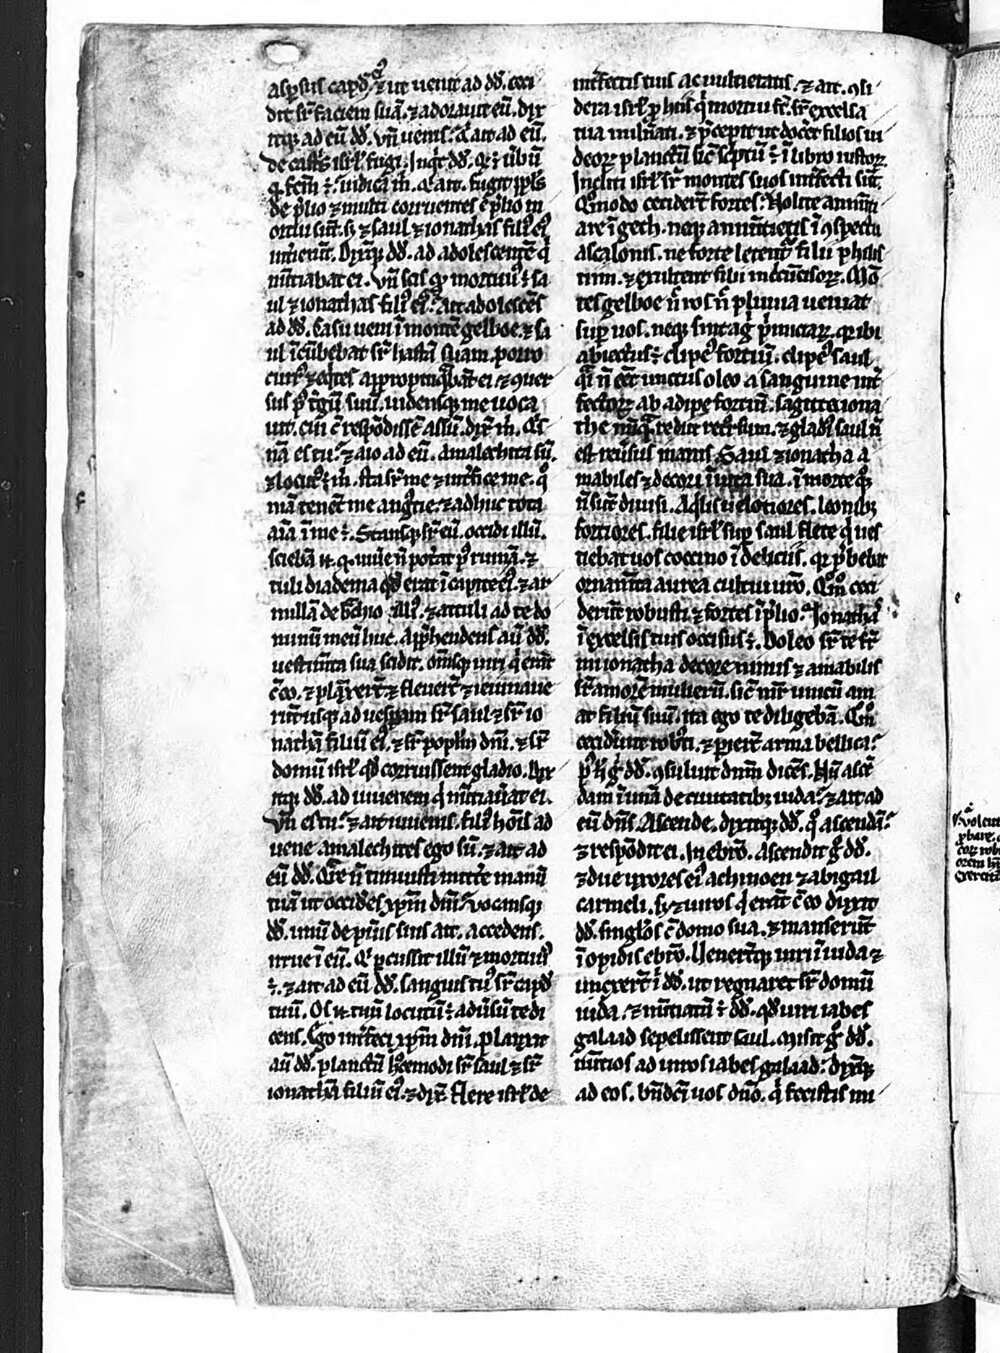 aspsus capđ. ⁊ ut uenit ad dđ. ceci
dit sr̄ faciem suā. ⁊ adorauit eū. Dix
itq; ad eū dđ. Vn̄ uenis? Q̇ ait ad eū.
de cast's isrl̄ fugi. Inq̇t dđ. Qđ ē ub̄ū
q̊ fcm̄ ē? indica m̄. Q̇ ait. fugit ppl's
de p̄lio ⁊ multi corruentes ē p̄lio m
ortui sūt. Sꝫ ⁊ saul ⁊ ionathas fili⁹ ei⁹
int'ierūt. Dixitq; dđ. ad adolescentē q̇
nūtiabat ei. Vn̄ scis q̇ mortuu⁹ ē sa
ul ⁊ ionathas fili⁹ ei⁹? Ait adolescēs
ad dđ. Casu ueni ī montē gelboe. ⁊ sa
ul īcūbebat sr̄ hastā suam. porro
curr⁹ ⁊ eq̇tes appropīquabāt ei. ⁊ ꝯuer
sus p⁹ t'gū suū. uidensq; me uoca
uit. Cui c̄ respōdissē assū. dix̄ m̄. Q̇s
nā es tu? ⁊ aio ad eū. Amalechita sū.
⁊ locut⁹ ē m̄. Sta sr̄ me ⁊ int'fice me. qm̄
mā tenēt me angtie. ⁊ adhuc tota
aīa ī me ē. Stansq; sr̄ eū. occidi illū.
sciebā n̄. q̇ uiu'e n̄ pot'at p⁹ ruinā. ⁊
tuli diadema qđ erat ī capite ei⁹. ⁊ ar
millā de bchio illi⁹. ⁊ attuli ad te do
minū meū huc. App̄hendens aū dđ.
uestim̄ta sua scidit. om̄sq; uiri q̇ erāt
c̄ eo. ⁊ planxer̄t ⁊ fleuer̄t ⁊ ieiunaue
rūt usq; ad uesꝑam sr̄ saul ⁊ sr̄ io
nathā filiū ei⁹. ⁊ sr̄ popl̄m dn̄i. ⁊ sr̄
domū isrl̄ qđ corruissent gladio. Dix
itq; dđ. ad iuuenem q̇ nūtiau'at ei.
Vn̄ es tu? ⁊ ait iuuenis. fili⁹ hoīs ad
uene amalechites ego sū. ⁊ ait ad
eū dđ. Qr̄e n̄ timuisti mitt'e manū
tuā ut occid'es xp̄m dn̄i? Vocansq;
dđ. unū de pu'is suis ait. accedens.
irrue ī eū. Q̇ p̄cussit illū ⁊ mortuu⁹
ē. ⁊ ait ad eū dđ. sanguis tu⁹ sr̄ capđ
tuū. Os n̄ tuū locutū ē adu'sū te di
cens. Ego int'feci xp̄m dn̄i. planxit
aū dđ. planctū hꝰcemodi sr̄ saul ⁊ sr̄
ionathā filiū ei⁹. ⁊ dix̄. flere isrl̄ de
int'fectis tuis ac uulneratis. ⁊ ait. ꝯsi
dera isrl̄ ꝓ hiis q̇ mortui sūt. sr̄ excelsa
tua uuln'ati. ⁊ p̄cepit ut docer̄t filios iu
deoꝝ planctū sic sc̄ptū ē ī libro iustoꝝ.
Incliti isrl̄ sr̄ montes suos int'fecti sūt.
Qūodo cecider̄t fortes? Nolite annūti
are ī geth. neq; annūtietis ī ꝯspectu
ascalonis. ne forte letent' filie philis
tiim. ⁊ exultent filie incircūcisoꝝ. Mō
tes gelboe n̄ ros n̄ pluuia ueniat
suꝑ uos. neq; sint ag'i p'miciaꝝ. qr̄ ibi
abiectus ē clipe⁹ fortiū. clipe⁹ saul
q̄i n̄ eēt unctus oleo a sanguine int'
fectoꝝ ab adipe fortiū. sagitta iona
the nūq̄ rediit retrsum. ⁊ gladi⁹ saul n̄
est reu'sus inanis. Saul ⁊ ionatha a
mabiles ⁊ decori ī uita sua. ī morte q̇q̇
n̄ sūt diuisi. Aq̇lis uelotiores. leonibꝫ
fortiores. filie isrl̄ suꝑ saul flete q̇ ues
tiebat uos coccino ī deliciis. q̇ p̄bebat
ornam̄ta aurea cultui ur̄o. Qm̊o ceci
der̄ūt robusti ⁊ fortes ī p̄lio. Ionathā
ī excelsis tuis occisus ē. Doleo sr̄ te fr̄
mi ionatha decore nimis ⁊ amabilis
sr̄ amorē mulierū. sic mr̄ unicū am
at filiū suū. ita ego te diligebā. Qm̊o
cecider̄ūt rob'ti. ⁊ ꝑier̄t arma bellica?
p⁹ h̄ g̊ dđ. ꝯsuluit dn̄m dicēs. Nū ascē
dam ī unā de ciuitatibꝫ iuda? ⁊ ait ad
eū dn̄s. Ascende. dixitq; dđ. q̊ ascendā?
⁊ respōdit ei. In ebrō. Ascendit g̊ dđ.
⁊ due uxores ei⁹ achinoen ⁊ abigail
carmeli. Sꝫ ⁊ uiros q̇ erāt c̄ eo duxit
dđ. singlos c̄ domo sua. ⁊ manserūt
ī opidis ebrō. Uener̄tq; uiri iuda ⁊
unxer̄t ī dđ. ut regnaret sr̄ domū
iuda. ⁊ nūtiatū ē dđ. qđ uiri iabes
galaad sepelissent saul. Misit g̊ dđ.
nūtios ad uiros iabes galaad. dixitq;
ad eos. bn̄dcī uos dn̄o. q̇ fecistis mi